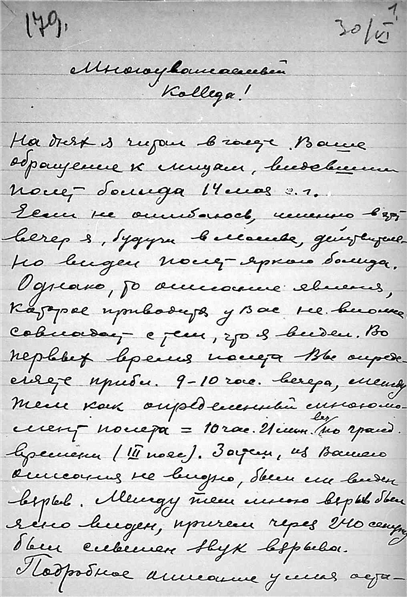 179.
30/VI
1
Многоуважаемый
Kollega!
На днях я читал в газете Ваше
обращение к лицам, видевшим
полет болида 14 мая с. г.
Если не ошибаюсь, именно в этот
вечер я, будучи в Москве, действитель-
но видел полет яркого болида.
Однако, то описание явления,
которое приводится у Вас не вполне
совпадает с тем, что я видел. Во
первых время полета Вы опреде-
ляете прибл. 9-10 час. вечера, между
тем как определенный мною мо-
мент полета = 10 час. 21 мин. веч. по гражд.
времени (III пояс). Затем, из Вашего
описания не видно, был ли виден
взрыв. Между тем мною взрыв был
ясно виден, причем через 240 секунд
был слышен звук взрыва.
Подробное описание у меня оста-